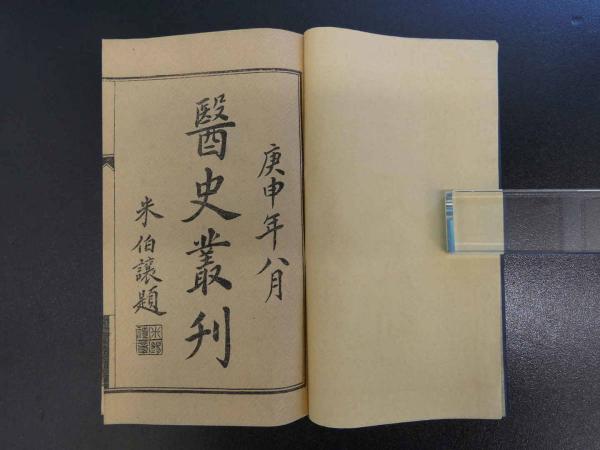 庚申年八月
醫史叢刊
米伯讓題